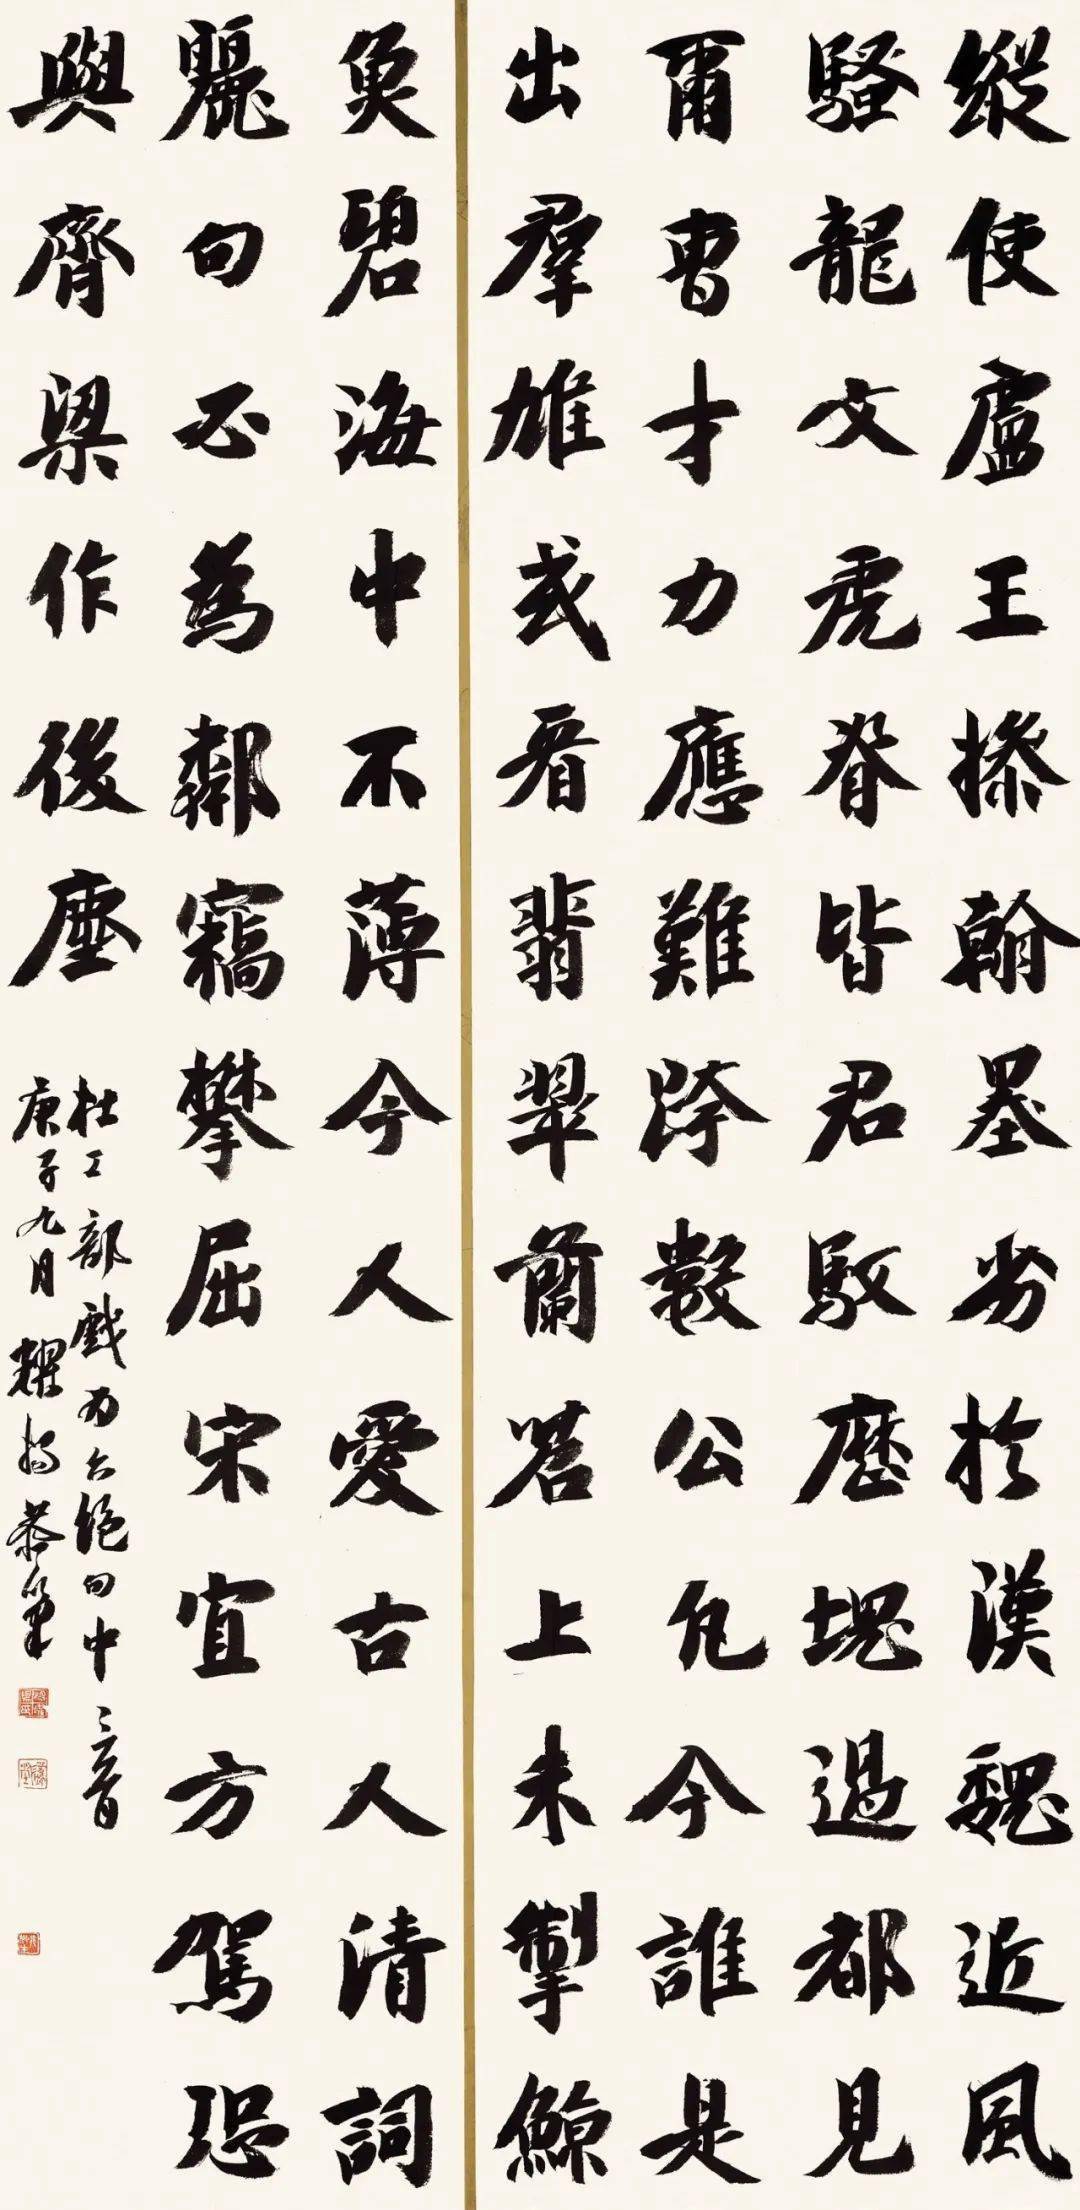 縱使盧王操翰墨劣於漢魏近風
騷龍文虎脊皆君馭歷塊過都見
爾曹才力應難跨數公凡今誰是
出羣雄或看翡翠蘭苕上未掣鯨
魚碧海中不薄今人愛古人清詞
麗句必為鄰竊攀屈宋宜方駕恐
與齊梁作後塵
杜工部戲為六絕句中三首
庚子九月耀恭筆